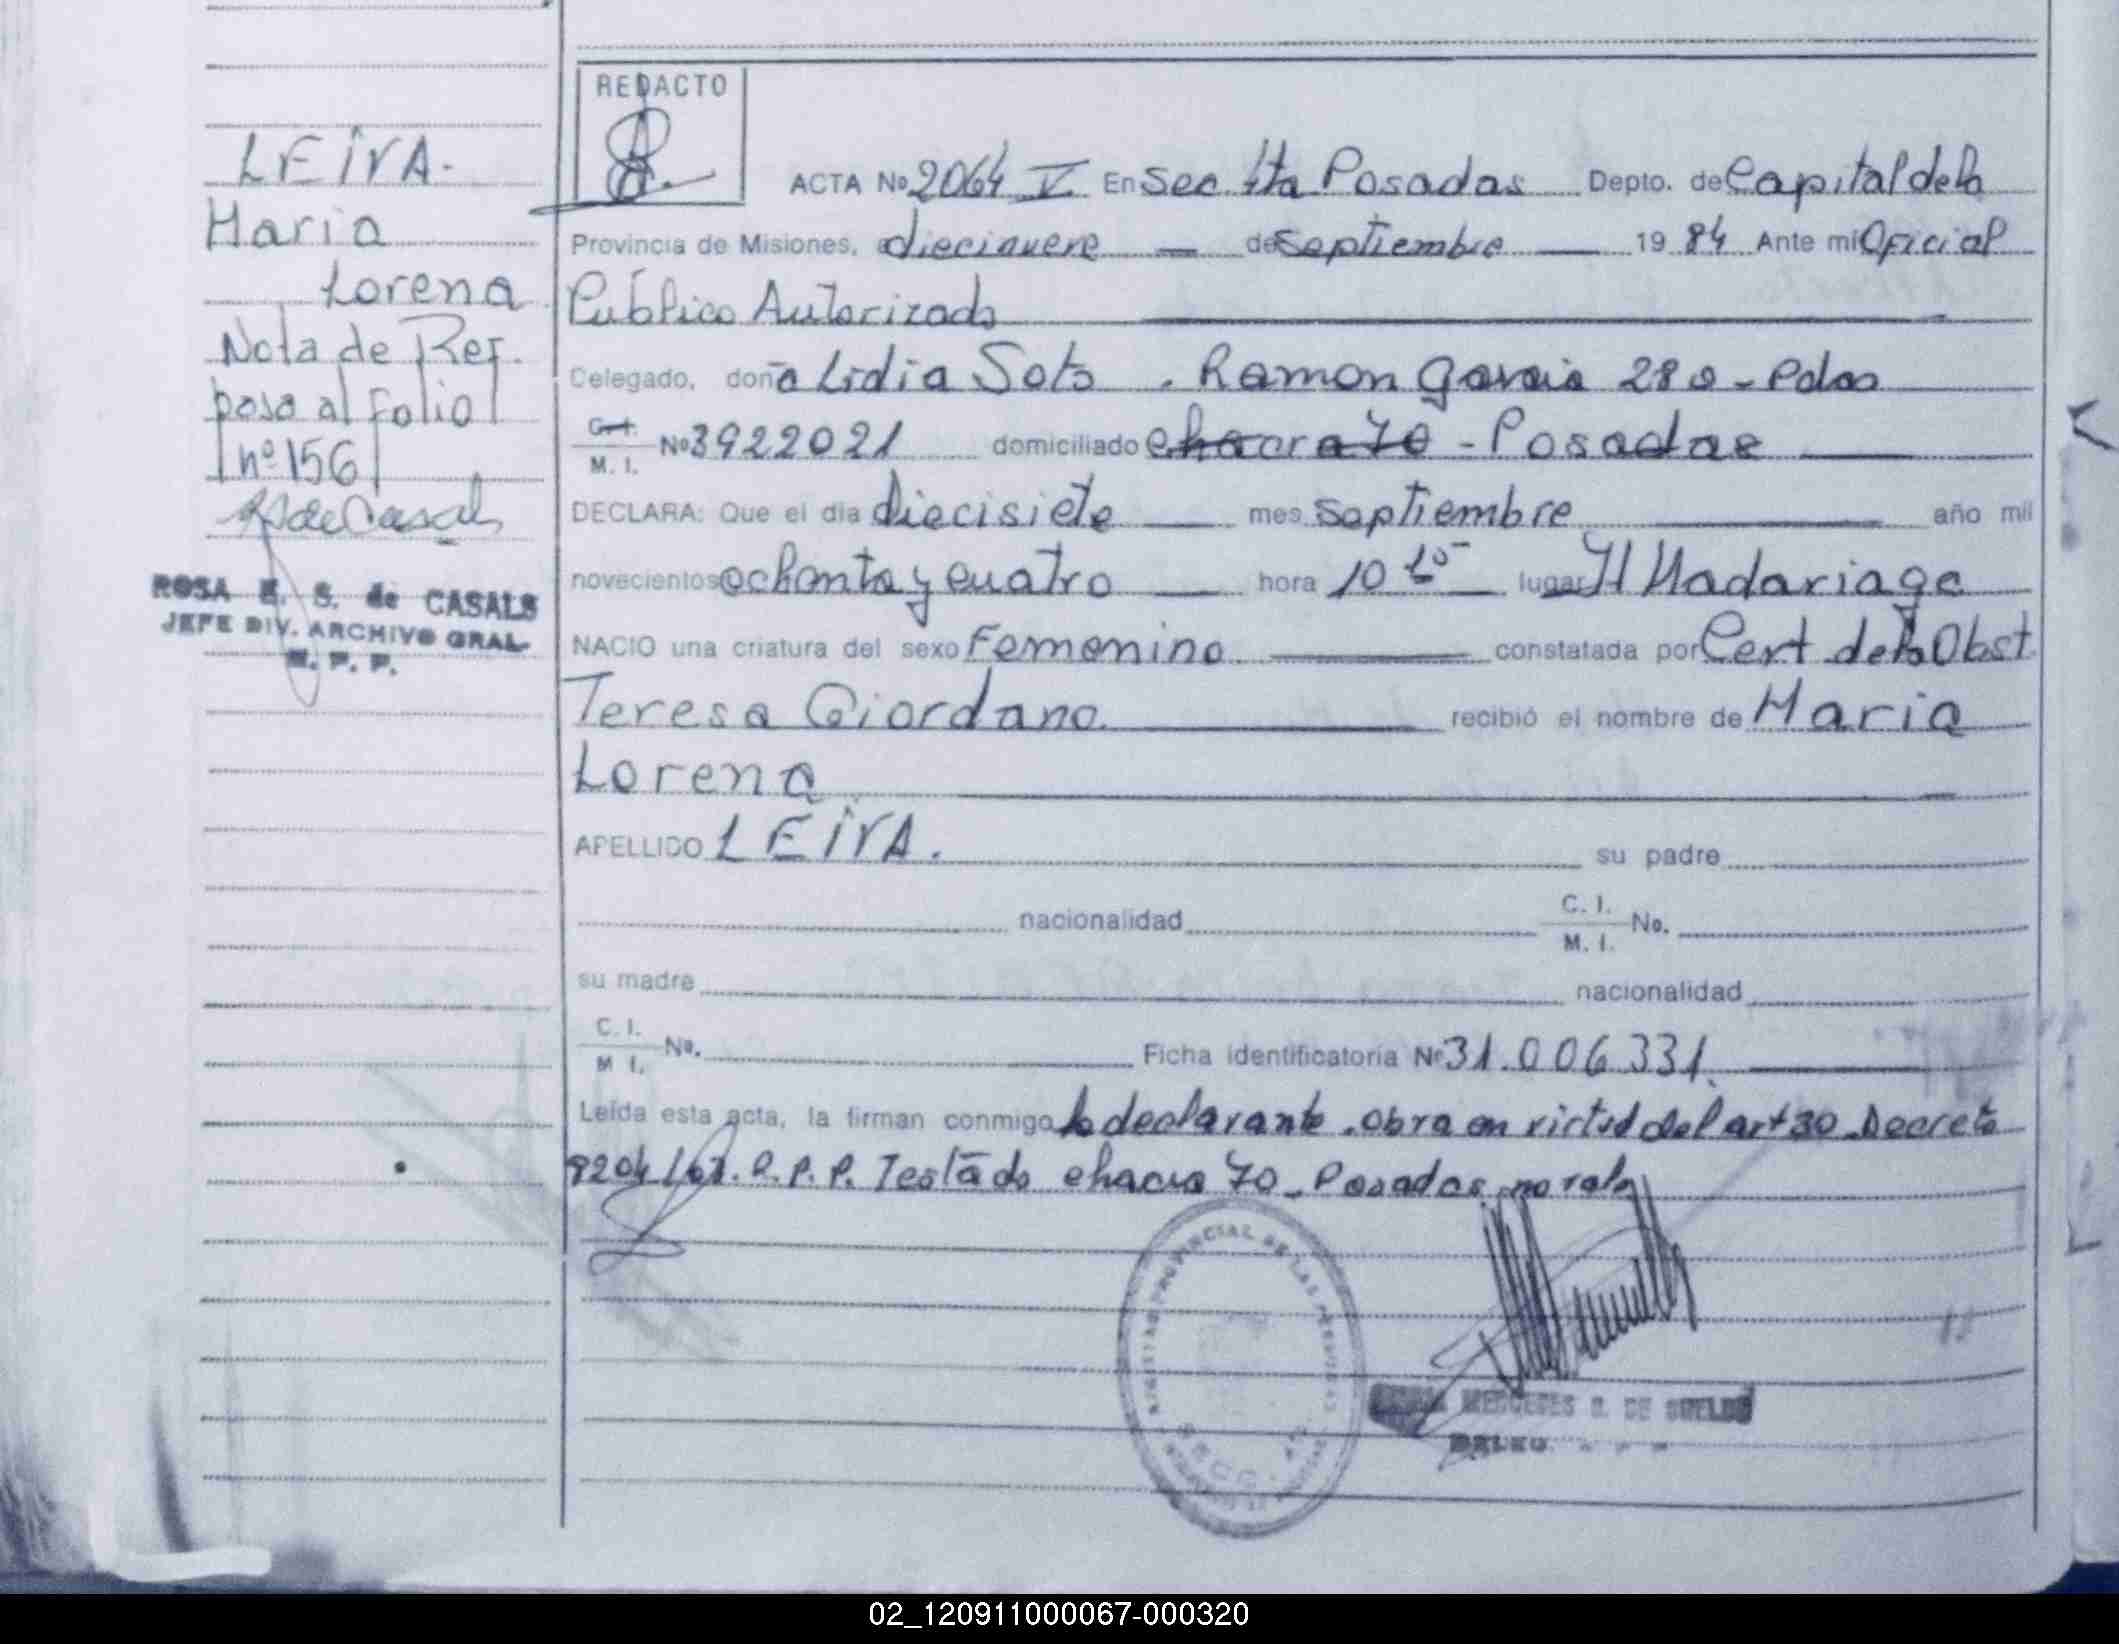 LEIVA.
Maria
Lorena
Nota de Ref.
pasa al folio
nº 156
ROSA E. S. de CASALS
JEFE DIV. ARCHIVO GRAL.
R. P. P.
REDACTO
ACTA No 2064 V En Sec 4ta Posadas Depto. de Capital de la
Provincia de Misiones, a diecinueve de Septiembre 19 84 Ante mi Oficial
Público Autorizado
Celegado, doña Lidia Soto . Ramon Garcia 280 - Pdas
C. I. M. I. No 3922021 domiciliado chacra 70 - Posadas
DECLARA: Que el día diecisiete mes septiembre año mil
novecientos ochenta y cuatro hora 10 lugar H Madariaga
NACIO una criatura del sexo Femenino constatada por Cert de la Obst
Teresa Giordano. recibió el nombre de Maria
Lorena
APELLIDO LEIVA. su padre
nacionalidad C. I. M. I. No.
su madre nacionalidad
C. I. M I. No. Ficha identificatoria No 31.006.331.
Leída esta acta, la firman conmigo la declarante . Obra en virtud del art 30 Decreto
8204/63. R.P.P. Testado chacra 70 - Posadas no vale
REGISTRO PROVINCIAL DE LAS PERSONAS
MERCEDES
02_120911000067-000320